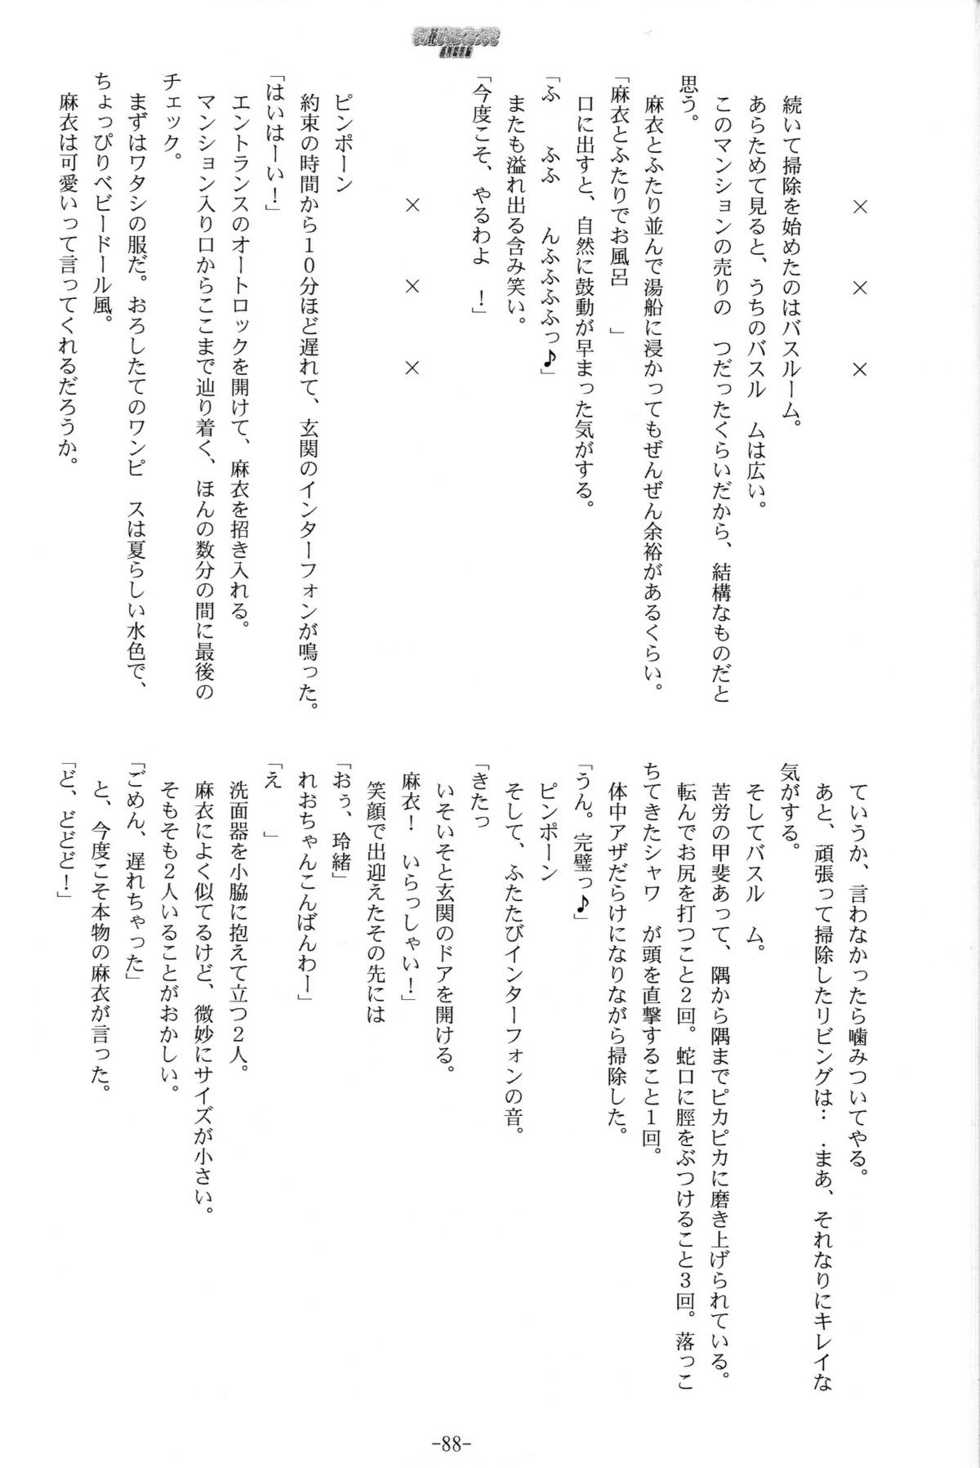 × × ×
続いて掃除を始めたのはバスルーム。
あらためて見ると、うちのバスル ムは広い。
このマンションの売りの つだったくらいだから、結構なものだと
思う。
麻衣とふたり並んで湯船に浸かってもぜんぜん余裕があるくらい。
「麻衣とふたりでお風呂 」
口に出すと、自然に鼓動が早まった気がする。
「ふ ふふ んふふふふっ♪」
またも溢れ出る含み笑い。
「今度こそ、やるわよ !」
× × ×
ピンポーン
約束の時間から10分ほど遅れて、玄関のインターフォンが鳴った。
「はいはーい!」
エントランスのオートロックを開けて、麻衣を招き入れる。
マンション入り口からここまで辿り着く、ほんの数分の間に最後の
チェック。
まずはワタシの服だ。おろしたてのワンピ スは夏らしい水色で、
ちょっぴりベビードール風。
麻衣は可愛いって言ってくれるだろうか。
ていうか、言わなかったら噛みついてやる。
あと、頑張って掃除したリビングは‥ ・まあ、それなりにキレイな
気がする。
そしてバスル ム。
苦労の甲斐あって、隅から隅までピカピカに磨き上げられている。
転んでお尻を打つこと2回。蛇口に脛をぶつけること3回。落っこ
ちてきたシャワ が頭を直撃すること1回。
体中アザだらけになりながら掃除した。
「うん。完璧っ♪」
ピンポーン
そして、ふたたびインターフォンの音。
「きたっ
いそいそと玄関のドアを開ける。
麻衣! いらっしゃい!」
笑顔で出迎えたその先には
「おぅ、玲緒」
れおちゃんこんばんわー」
「え 」
洗面器を小脇に抱えて立つ2人。
麻衣によく似てるけど、微妙にサイズが小さい。
そもそも2人いることがおかしい。
「ごめん、遅れちゃった」
と、今度こそ本物の麻衣が言った。
「ど、どどど!」
-88-